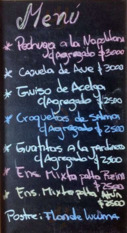 Menú
* Pechuga a la Napolitana
c/Agregado $3000
* Cazuela de Ave $3000
* Guiso de Acelga
c/Agregado $2500
* Croquetas de
c/Agregado $2500
* Guatitas a la jardinera
c/Agregado $2500
* Ens. Mixta
$2500
* Ens. Mixta Atún
$2500
Postre: Flan de